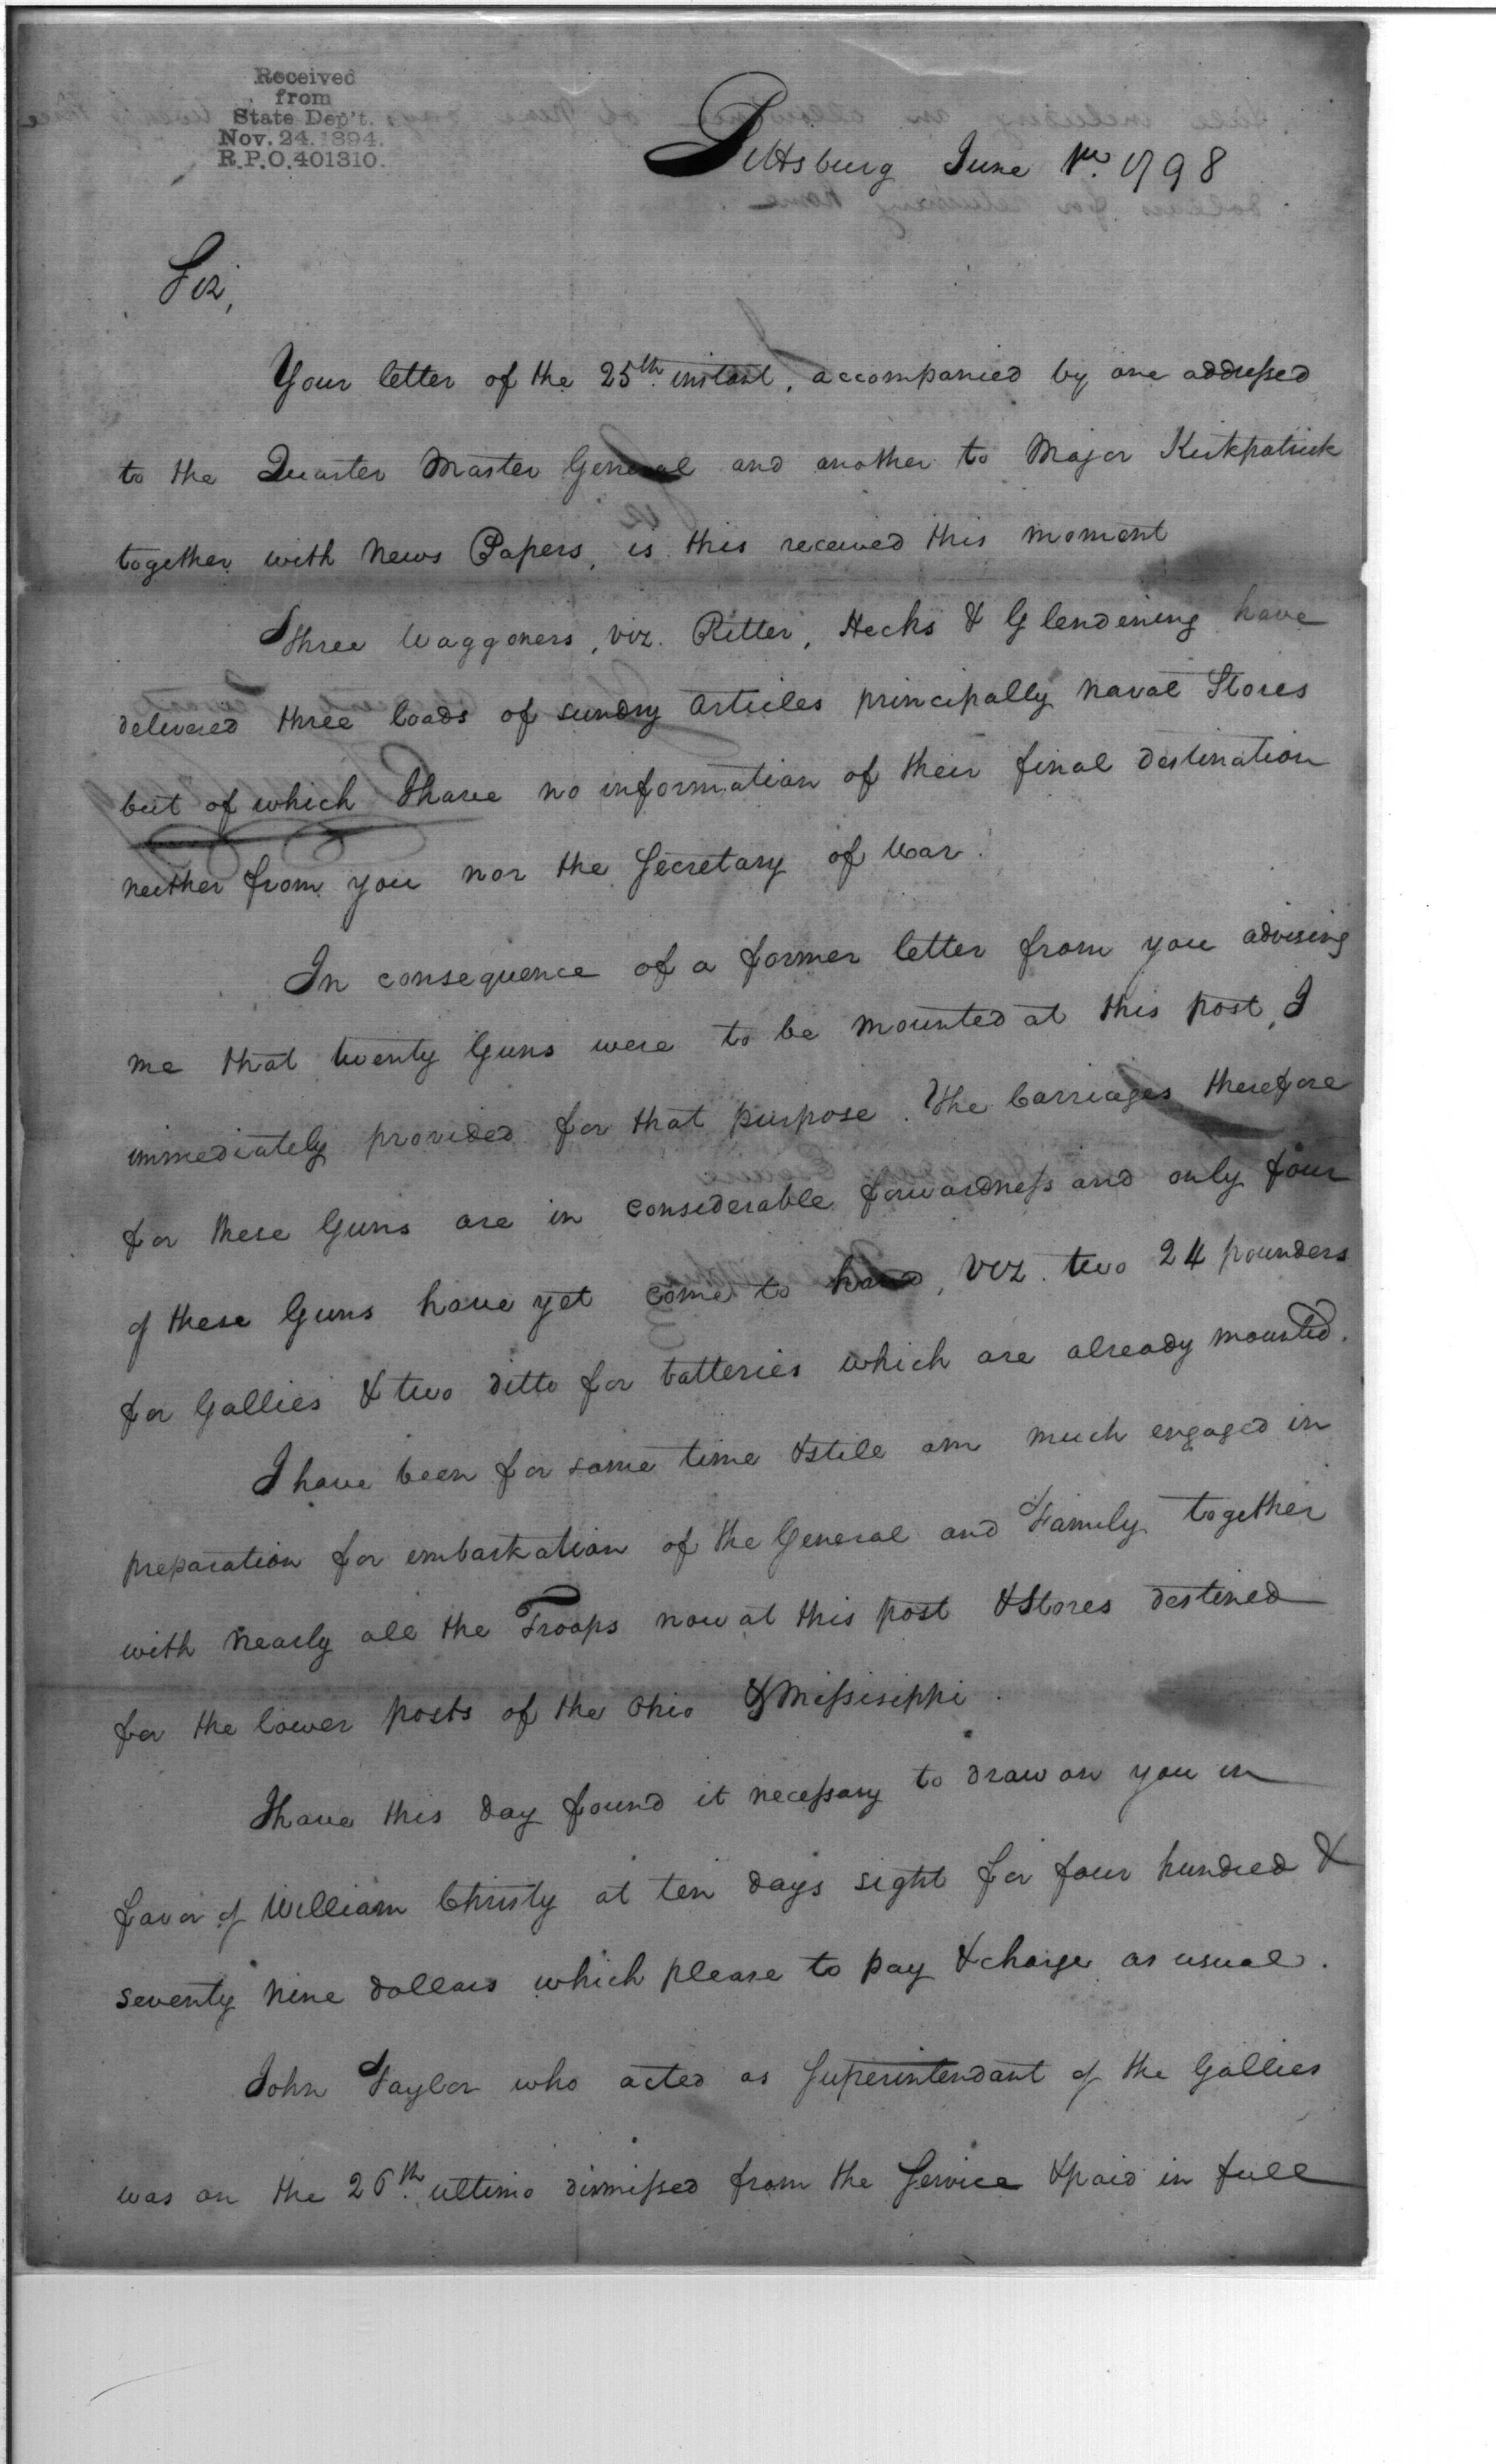 Received
from
State Dep't.
Nov. 24. 1894.
R.P.O. 401310.
Pittsburg June 1st. 1798
Sir,
Your letter of the 25th. instant, accompanied by one addressed
to the Quarter Master General and another to Major Kirkpatrick
together with News Papers, is this received this moment
Three Waggoners, viz. Ritter, Hecks & Glendening have
delivered three loads of sundry articles principally naval Stores
but of which I have no information of their final destination
neither from you nor the Secretary of War.
In consequence of a former letter from you advising
me that twenty Guns were to be mounted at this post, I
immediately provided for that purpose. The Carriages therefore
for these Guns are in considerable forwardness and only four
of these Guns have yet come to hand, viz. two 24 pounders
for Gallies & two ditto for batteries which are already mounted.
I have been for some time & still am much engaged in
preparation for embarkation of the General and Family together
with nearly all the Troops now at this post & Stores destined
for the lower posts of the Ohio & Missisippi.
I have this day found it necessary to draw on you in
favor of William Christy at ten days sight for four hundred &
seventy nine dollars which please to pay & charge as usual.
John Taylor who acted as Superintendant of the Gallies
was on the 26th. ultimo dismissed from the Service & paid in full